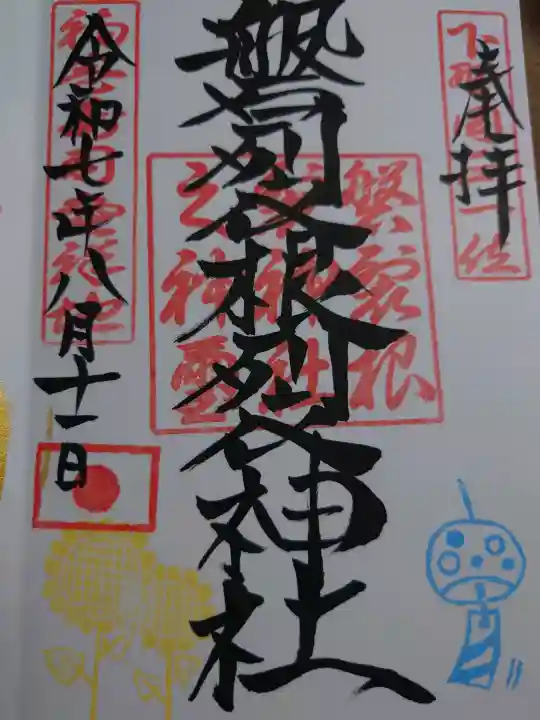 奉拝
磐裂根裂神社
磐裂根
裂神社
之神
令和七年八月十一日